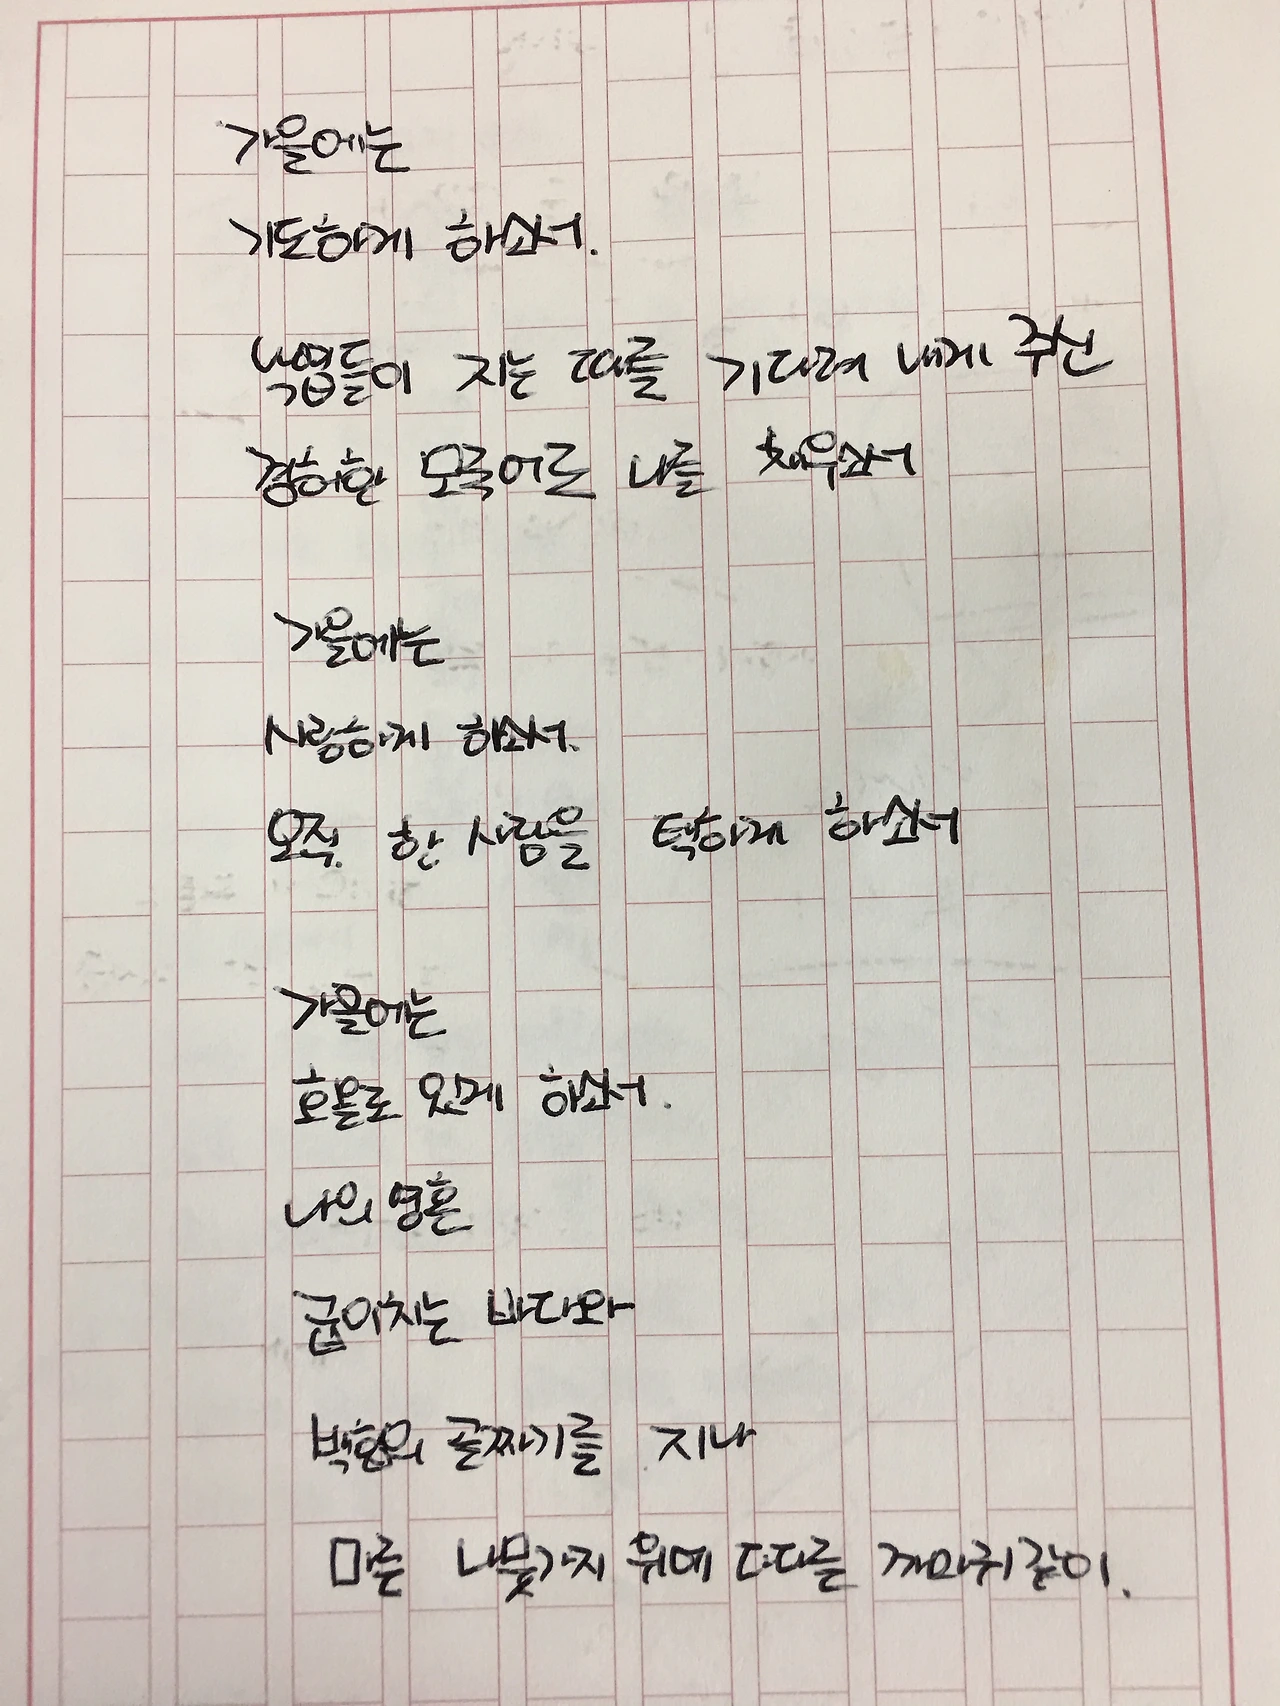 가을에는
기도하게 하소서.
낙엽들이 지는 때를 기다려 내게 주신
겸허한 모국어로 나를 채우소서
가을에는
사랑하게 하소서.
오직 한 사람을 택하게 하소서
가을에는
호올로 있게 하소서.
나의 영혼
굽이치는 바다와
백합의 골짜기를 지나
마른 나뭇가지 위에 다다른 까마귀같이.